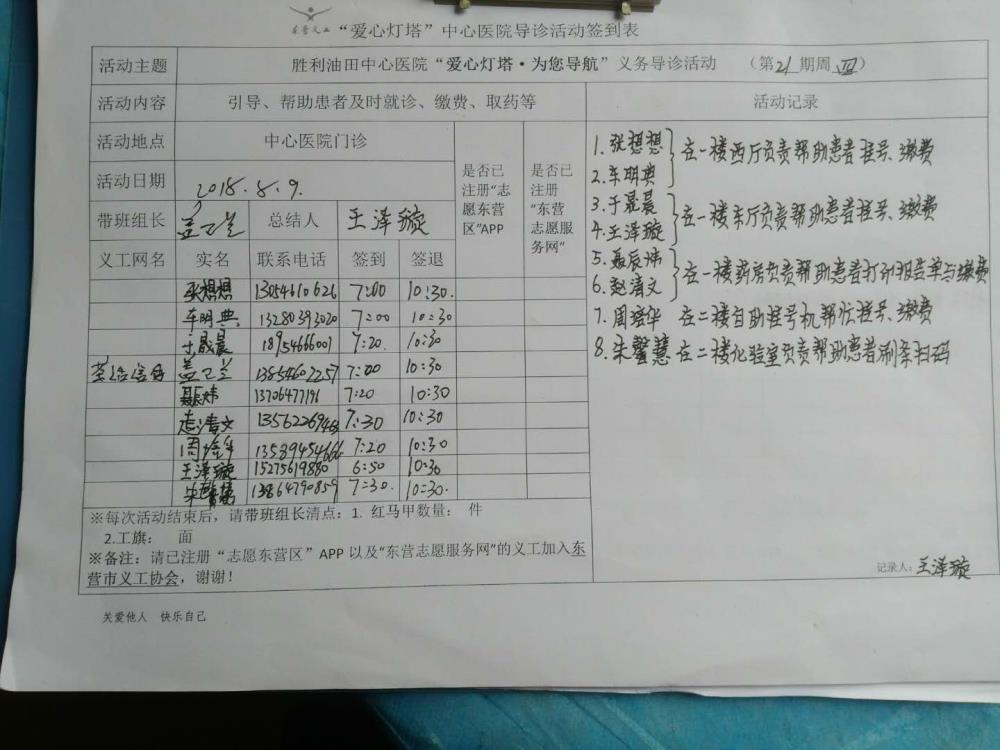 东营义工 “爱心灯塔”中心医院导诊活动签到表
活动主题 胜利油田中心医院“爱心灯塔·为您导航”义务导诊活动 (第21期周四)
活动内容 引导、帮助患者及时就诊、缴费、取药等 活动记录
活动地点 中心医院门诊 是否已注册“志愿东营区”APP 是否已注册“东营志愿服务网”
活动日期 2018.8.9.
带班组长 盖乙兰 总结人 王泽璇
义工网名 实名 联系电话 签到 签退
张想想 13054610626 7:00 10:30.
车明典 13280393020 7:00 10:30
于晟晨 18954666001 7:20. 10:30
盖乙兰 13854602257 7:00 10:30
聂辰炜 13706477191 7:20 10:30
赵清文 1356226946 7:30 10:30
周培华 13589454666 7:20 10:30
王泽璇 15275619880 6:50 10:30
朱馨慧 13864790859 7:30. 10:30.
1.张想想
2.车明典
在一楼西厅负责帮助患者挂号、缴费
3.于晟晨
4.王泽璇
在一楼东厅负责帮助患者挂号、缴费
5.聂辰炜
6.赵清文
在一楼药房负责帮助患者打印报告单与缴费
7.周培华 在二楼自助挂号机帮忙挂号、缴费
8.朱馨慧 在二楼化验室负责帮助患者刷条扫码
※每次活动结束后，请带班组长清点：1. 红马甲数量： 件
2.工旗： 面
※备注：请已注册“志愿东营区”APP 以及“东营志愿服务网”的义工加入东
营市义工协会，谢谢！
记录人：王泽璇
关爱他人 快乐自己